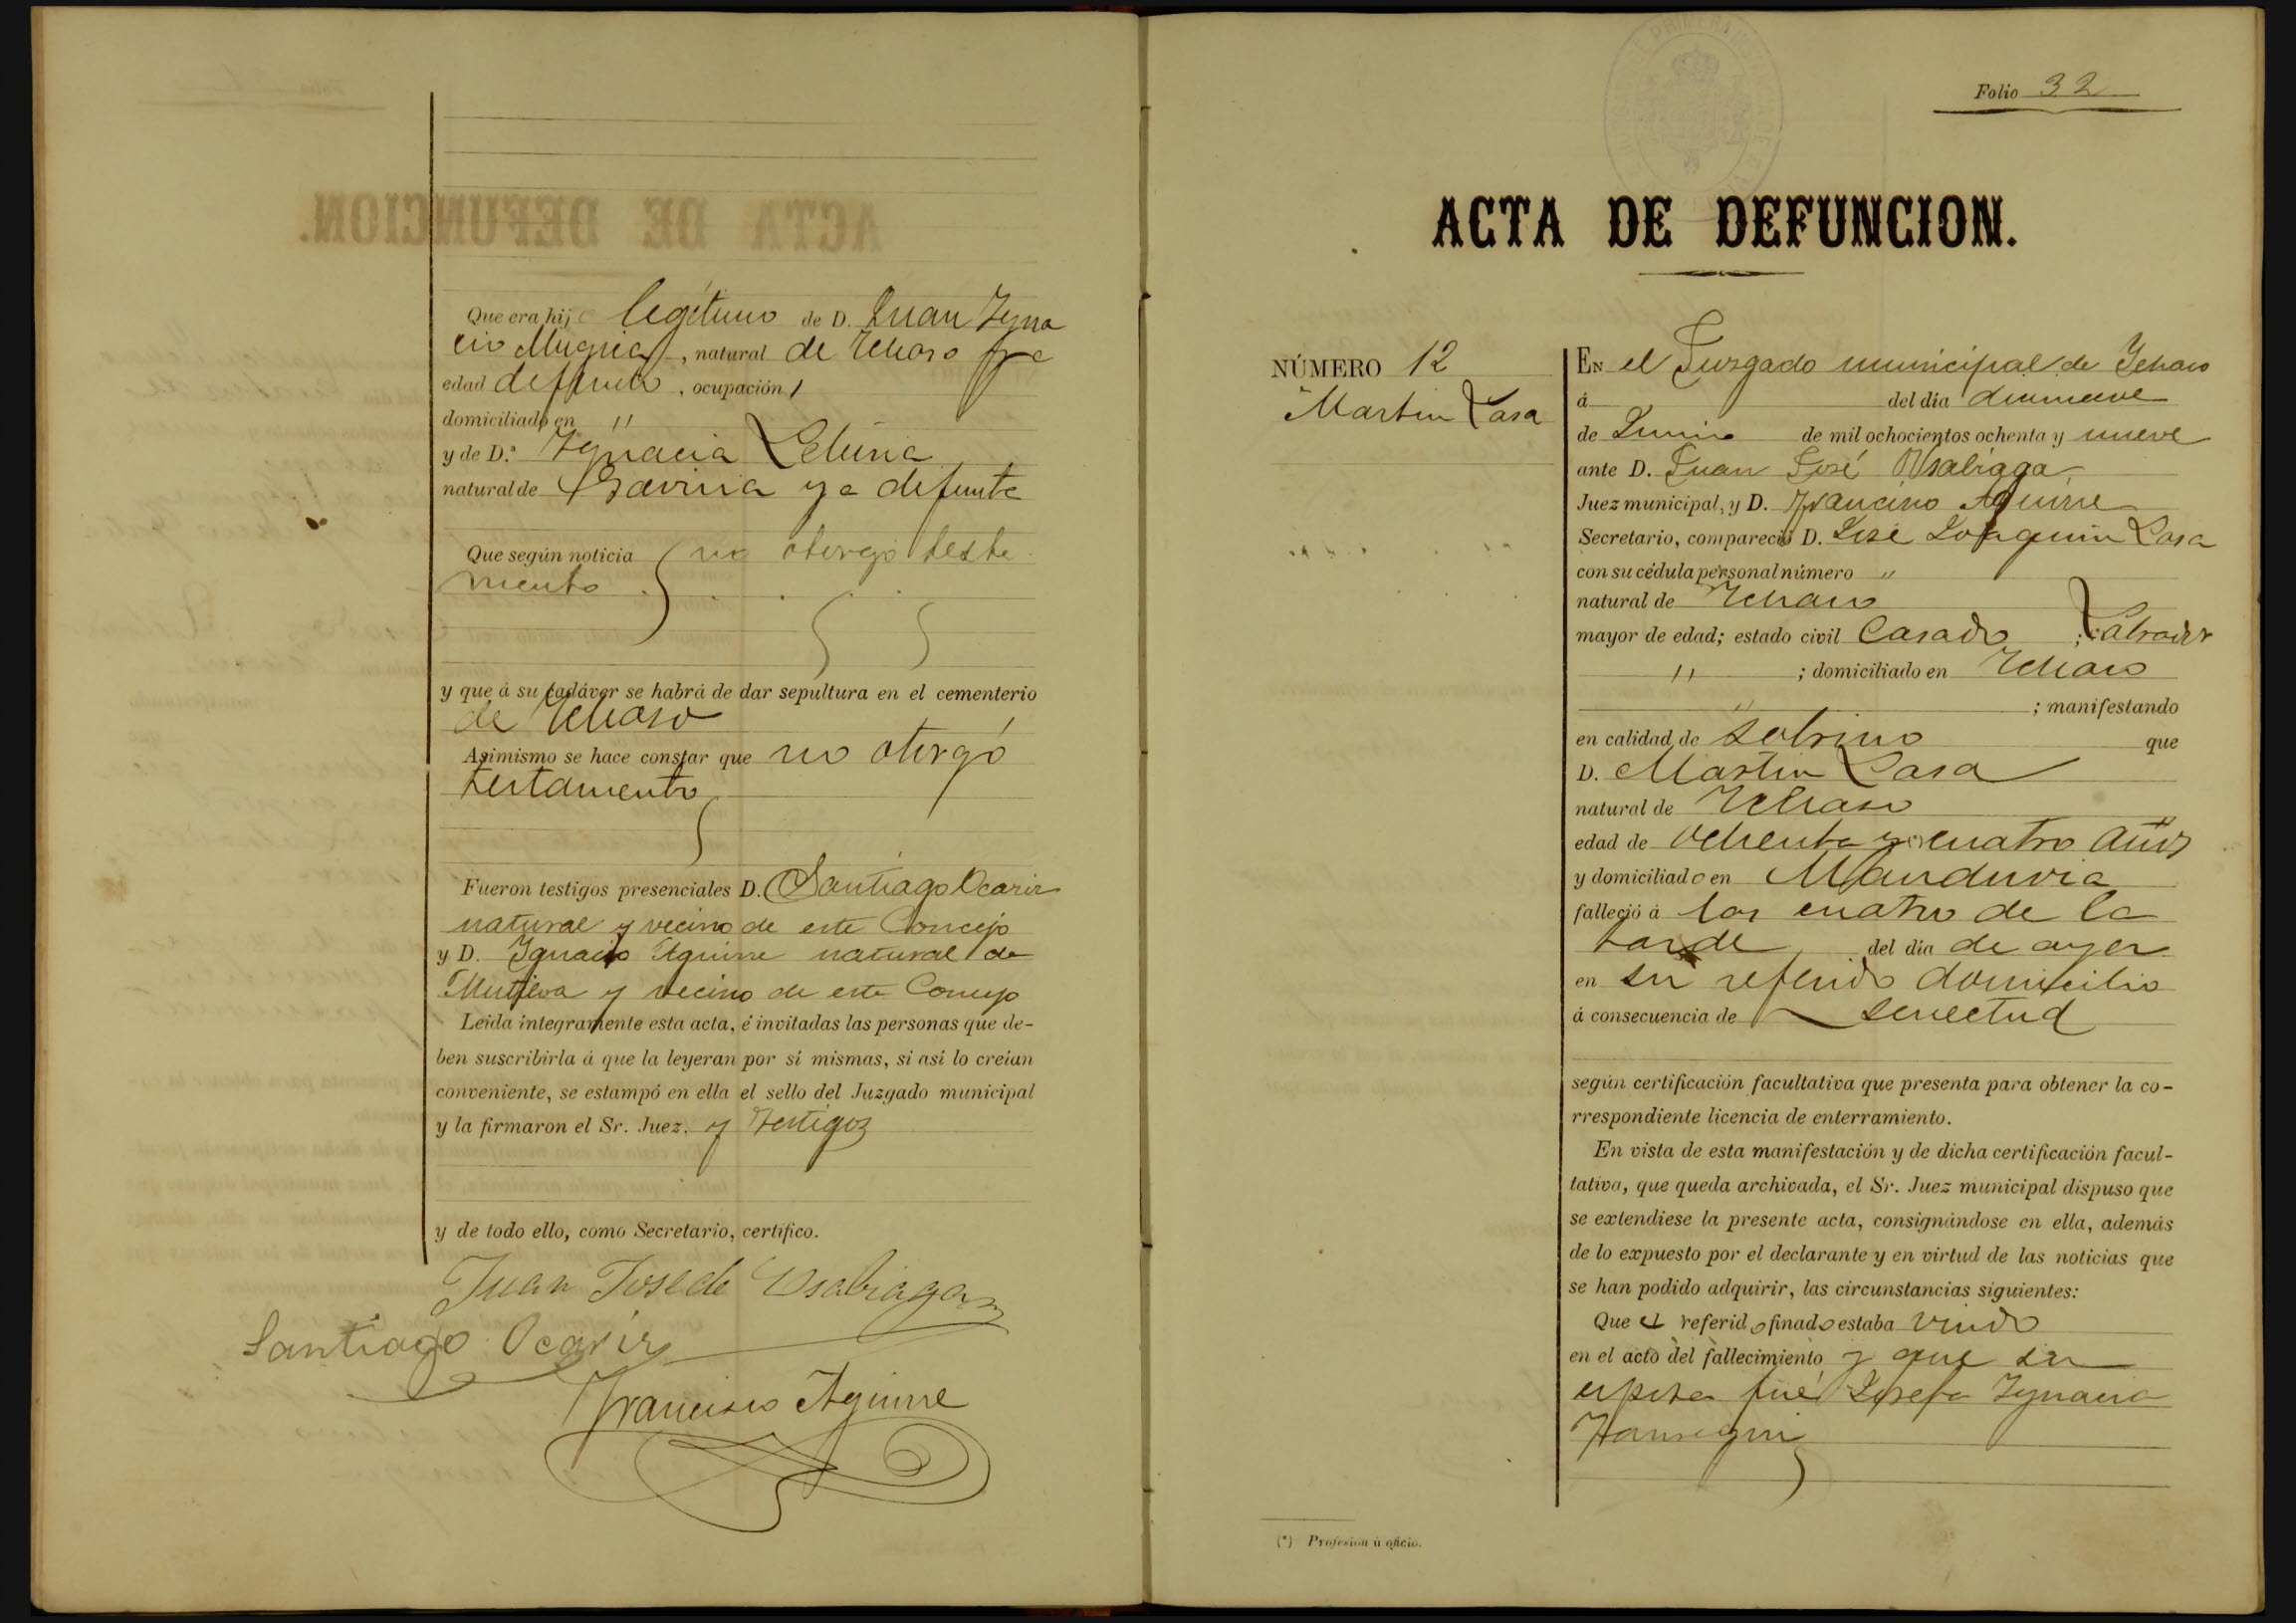 Que era hijo legítimo de D. Juan Ygna
cio Mugica, natural de Ichaso ya
edad difunto, ocupación
domiciliado en "
y de D.ª Ygnacia
natural de Gaviria ya difunta
Que según noticia no otorgó testa
mento
y que á su cadáver se habrá de dar sepultura en el cementerio
de Ichaso
Asimismo se hace constar que no otorgó
testamento
Fueron testigos presenciales D. Santiago Ocariz
natural y vecino de este Concejo
y D. Ignacio Aguirre natural de
Mutiloa y vecino de este Concejo
Leída íntegramente esta acta, é invitadas las personas que de-
ben suscribirla á que la leyeran por sí mismas, si así lo creían
conveniente, se estampó en ella el sello del Juzgado municipal
y la firmaron el Sr. Juez, y testigos
y de todo ello, como Secretario, certifico.
Juan José de Usabiaga
Santiago Ocariz
Francisco Aguirre
Folio 32
ACTA DE DEFUNCION.
NÚMERO 12
Martin Lasa
EN el Juzgado municipal de Ichaso
á del día diecinueve
de Junio de mil ochocientos ochenta y nueve
ante D. Juan José Usabiaga
Juez municipal, y D. Francisco Aguirre
Secretario, compareció D. José Joaquin Lasa
con su cédula personal número "
natural de Ichaso
mayor de edad; estado civil Casado ; Labrador
" ; domiciliado en Ichaso
" ; manifestando
en calidad de sobrino que
D. Martin Lasa
natural de Ichaso
edad de ochenta y (*) cuatro años
y domiciliado en Manduvia
falleció á las cuatro de la
tarde del día de ayer
en su referido domicilio
á consecuencia de senectud
según certificación facultativa que presenta para obtener la co-
rrespondiente licencia de enterramiento.
En vista de esta manifestación y de dicha certificación facul-
tativa, que queda archivada, el Sr. Juez municipal dispuso que
se extendiese la presente acta, consignándose en ella, además
de lo expuesto por el declarante y en virtud de las noticias que
se han podido adquirir, las circunstancias siguientes:
Que el referido finado estaba viudo
en el acto del fallecimiento y que su
esposa fué Josefa Ygnacia
(*) Profesión ú oficio.